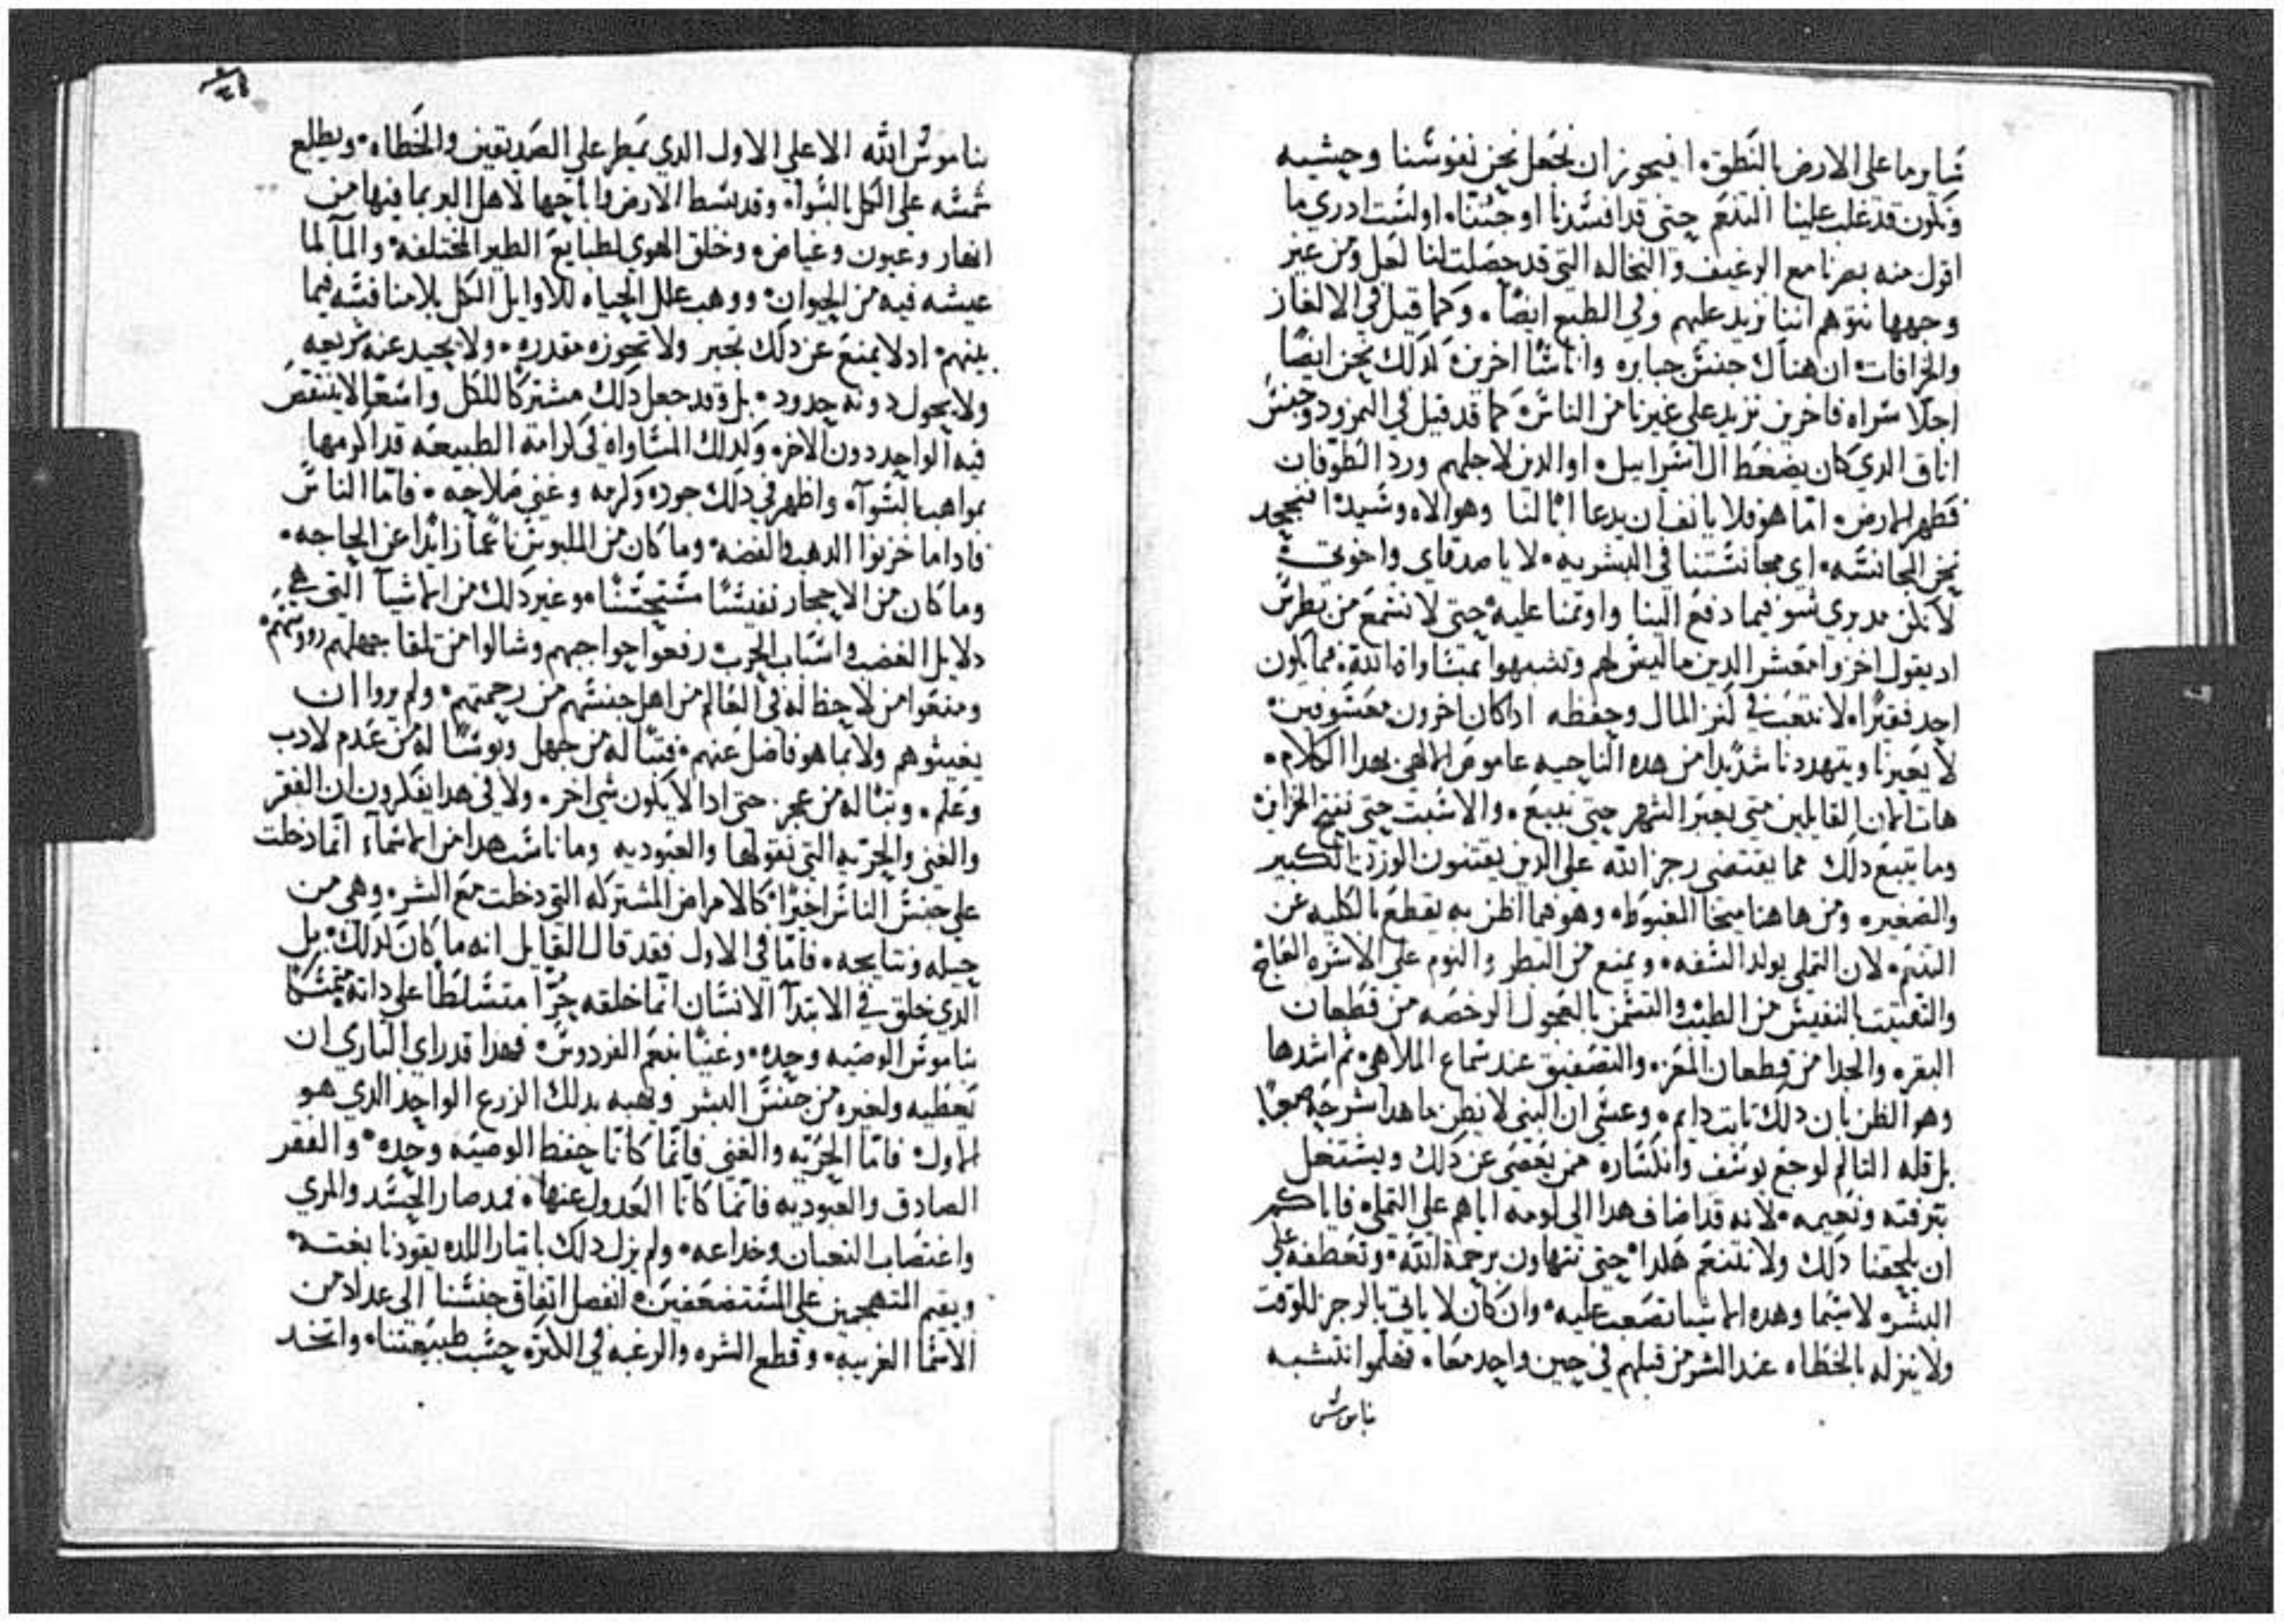 سايرما على الارض بالنطق، افيجوز ان نجعل نحن نفوسنا وحشيه
وتكون قد غلب علينا التنعم حتى قد افسدنا او جننا، اولست ادري ما
اقول منه بصرنا مع الرغيف والنخاله التي قد حصلت لنا لعل ومن غير
وجهها نتوهم اننا نزيد عليهم وفي الطبع ايضًا، وكما قيل في الالغاز
والخرافات، ان هناك جنس جبابره واناسًا اخرين، كذلك نحن ايضًا
اجلا سراه فاخرين نزيد على غيرنا من الناس، كما قد قيل في النمرود وجنس
اناق الدي كان يضغط ال اسراييل، او الدين لاجلهم ورد الطوفان
فطهر الارض، امّا هو فلا يانف ان يدعا ابًا لنا وهو الاه وسيد، افنجحد
نحن المجانسه، اي مجانستنا في البشريه، لا يا صدقاي واخوتي
لا نكن مدبري سو فيما دفع الينا واوتمنا عليه، حتى لا نسمع من بطرس
اد يقول اخزوا معشر الدين ما ليس لهم وتشبهوا بمساواة الله، فما يكون
احد فقيرًا، لا نتعب في كنز المال وحفظه اداكان اخرون معسوفين
لا يعيرنا ويتهددنا شديدا من هده الناحيه عاموص الالهي بهدا الكلام،
هات الان القايلين متى يعبر الشهر حتى نبيع، والاسبت حتى نفتح الخزاين
وما يتبع دلك مما يقتضي رجز الله على الدين يقتنون الوزن الكبير
والصغير، ومن هاهنا ميخا المغبوط، وهو فما اظن به يقطع بالكليه عن
التنعم، لان التملي يولد السفه، ويمنع من البطر والنوم على الاسره العاج
والتفتيت بالنفيس من الطيب والتسمن بالعجول الرخصه من قطعان
البقر، والجدا من قطعان المعز، والتصفيق عند سماع الملاهي، ثم اشدها
وهو الظن بان دلك تابت دايم، وعسى ان النبي لا يظن ما هدا شرحه صعبًا
بل قله التالم لوجع يوسف وانكساره ممن يغضى عن دلك ويشتغل
بترفته ونعيمه، لانه قد اضاف هدا الى لومه اياهم على التملي، فاياكم
ان يلحقنا دلك ولا نتنعم هكدا، حتى نتهاون برحمة الله، وتعطفه على
البشر، لاسيما وهده الاشيا تصعب عليه، وان كان لا ياتي بالرجز للوقت
ولا ينزله بالخطاه عند الشر من قبلهم في حين واحد معا، فعلموا نتشبه
ناموس
بناموس الله الاعلى الاول الدي يمطر على الصديقين والخطاه، ويطلع
شمسه على الكل بالسوآء، وقد بسط الارض واباحها لاهل البر بما فيها من
انهار وعيون وغياض، وخلق الهوي لطبايع الطير المختلفه، والمآ لما
عيشه فيه من الحيوان، ووهب علل الحياه للاوايل الكل بلا منافسه فيما
بينهم، اد لا يمنع عن دلك تجبر ولا تحوزه مقدره، ولا يحيد عنه شريعه
ولا يحول دونه حدود، بل وقد جعل دلك مشتركًا للكل واسعًا لا ينتقص
فيه الواحد دون الاخر، وكدلك المساواه في كرامة الطبيعه قد اكرمها
بمواهب بالسوآء، واظهر في دلك جوده وكرمه وغنى صلاحه، فامّا الناس
فاداما خزنوا الدهب والفضه، وما كان من الملبوس ناعمًا زايدًا عن الحاجه،
وما كان من الاحجار نفيسًا مستحسنًا، وغير دلك من الاشيآ التي هي
دلايل الغضب واسباب الحرب، رفعوا حواجبهم وشالوا من تلقا جهلهم رووسهم،
ومنعوا من لا حظ له في العالم من اهل جنسهم من رحمتهم، ولم يروا ان
يغيثوهم ولا بما هو فاضل عنهم، فتبًا له من جهل وبوسًا له من عدم لادب
وعلم، وتبًا له من عجز، حتى ادا لا يكون شي اخر، ولا في هدا يفكرون ان الفقر
والغنى والحريه التي نقولها والعبوديه وما ناسب هدا من الاسمآء انّما دخلت
على جنس الناس اخيرًا، كالامراض المشتركه التي دخلت مع الشر، وهي من
حيله ونتايجه، فامّا في الاول فقد قال القايل انه ما كان كدلك، بل
الدي خلق في الابتدآ الانسان انّما خلقه حُرًّا متسلطًا على داته متمسكًا
بناموس الوصيه وحده، وغنيًا بنعم الفردوس، فهدا قد راي الباري ان
يعطيه ولغيره من جنس البشر ويهبه بدلك الزرع الواحد الدي هو
الاول، فامّا الحريه والغنى فانّما كانا حفظ الوصيه وحده، والفقر
الصادق والعبوديه فانّما كانا العدول عنها، فمد صار الحسد والمري
واغتصاب التعبان وخداعه، ولم يزل دلك باتيار اللده يقودنا بغتة
ويقيم المتهجمين على المستضعفين، انفصل اتفاق جنسنا الى عداد من
الاسما الغريبه، وقطع الشره والرغبه في الكتره حسب طبيعتنا، واتخد